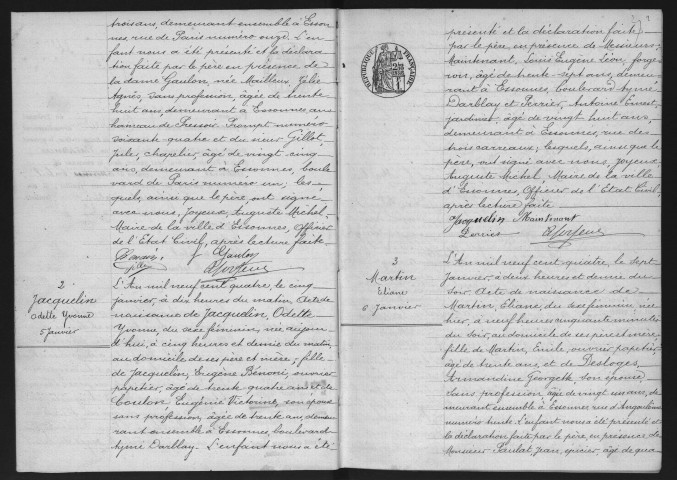 trois ans, demeurant ensemble à Esson-
nes, rue de Paris numéro onze. L'en-
fant nous a été présenté et la déclara-
tion faite par le père en présence de
la dame Gaulon, née Mailleux, Julie
Agnès, sans profession, âgée de trente
huit ans, demeurant à Essonnes au
hameau de Pressoir Prompt numéro
soixante-quatre et du sieur Gillot,
Jules, chapelier, âgé de vingt cinq
ans, demeurant à Essonnes, boule
vard de Paris numéro un; les
quels, ainsi que le père, ont signé
avec nous, Joyeux, Auguste Michel,
Maire de la ville d'Essonnes, Officier
de l'Etat Civil, après lecture faite.
Gaulon
AJoyeux
2
Jacquelin
Odette Yvonne
5 Janvier
L'An mil neuf cent quatre, le cinq
janvier, à dix heures du matin, Acte de
naissance de Jacquelin, Odette
Yvonne, du sexe féminin, née aujour
d'hui, à cinq heures et demie du matin,
au domicile de ses père et mère; fille
de Jacquelin, Eugène Bénoni, ouvrier
papetier, âgé de trente quatre ans et de
Coulon Eugénie Victorine, son épouse
sans profession, âgée de trente ans, demeu
rant ensemble à Essonnes, boulevard
Aymé Darblay. L'enfant nous a été
REPUBLIQUE FRANÇAISE
présenté et la déclaration faite
par le père en présence de Messieurs
Maintmont, Louis Eugène Léon, forge-
ron, âgé de trente-sept ans, demeu
rant à Essonnes, boulevard Aymé
Darblay et Perrier, Antoine Ernest,
jardinier, âgé de vingt huit ans,
demeurant à Essonnes, rue des
trois carreaux; lesquels, ainsi que le
père, ont signé avec nous, Joyeux,
Auguste Michel, Maire de la ville
d'Essonnes, Officier de l'Etat Civil,
après lecture faite
Jacquelin Maintmont
Perrier AJoyeux
3
Martin
Eliane
6 Janvier
L'An mil neuf cent quatre, le sept
Janvier, à deux heures et demie du
soir, Acte de naissance de
Martin, Eliane, du sexe féminin, née
hier, à neuf heures cinquante minutes
du soir, au domicile de ses père et mère;
fille de Martin, Emile, ouvrier papetier,
âgé de trente ans, et de Desloges,
Armandine Georgette, son épouse
sans profession, âgée de vingt un ans, de-
meurant ensemble à Essonnes rue d'Angoulême
numéro trente. L'enfant nous a été présenté et
la déclaration faite par le père, en présence de
Monsieur Paulat, Jean, épicier, âgé de qua